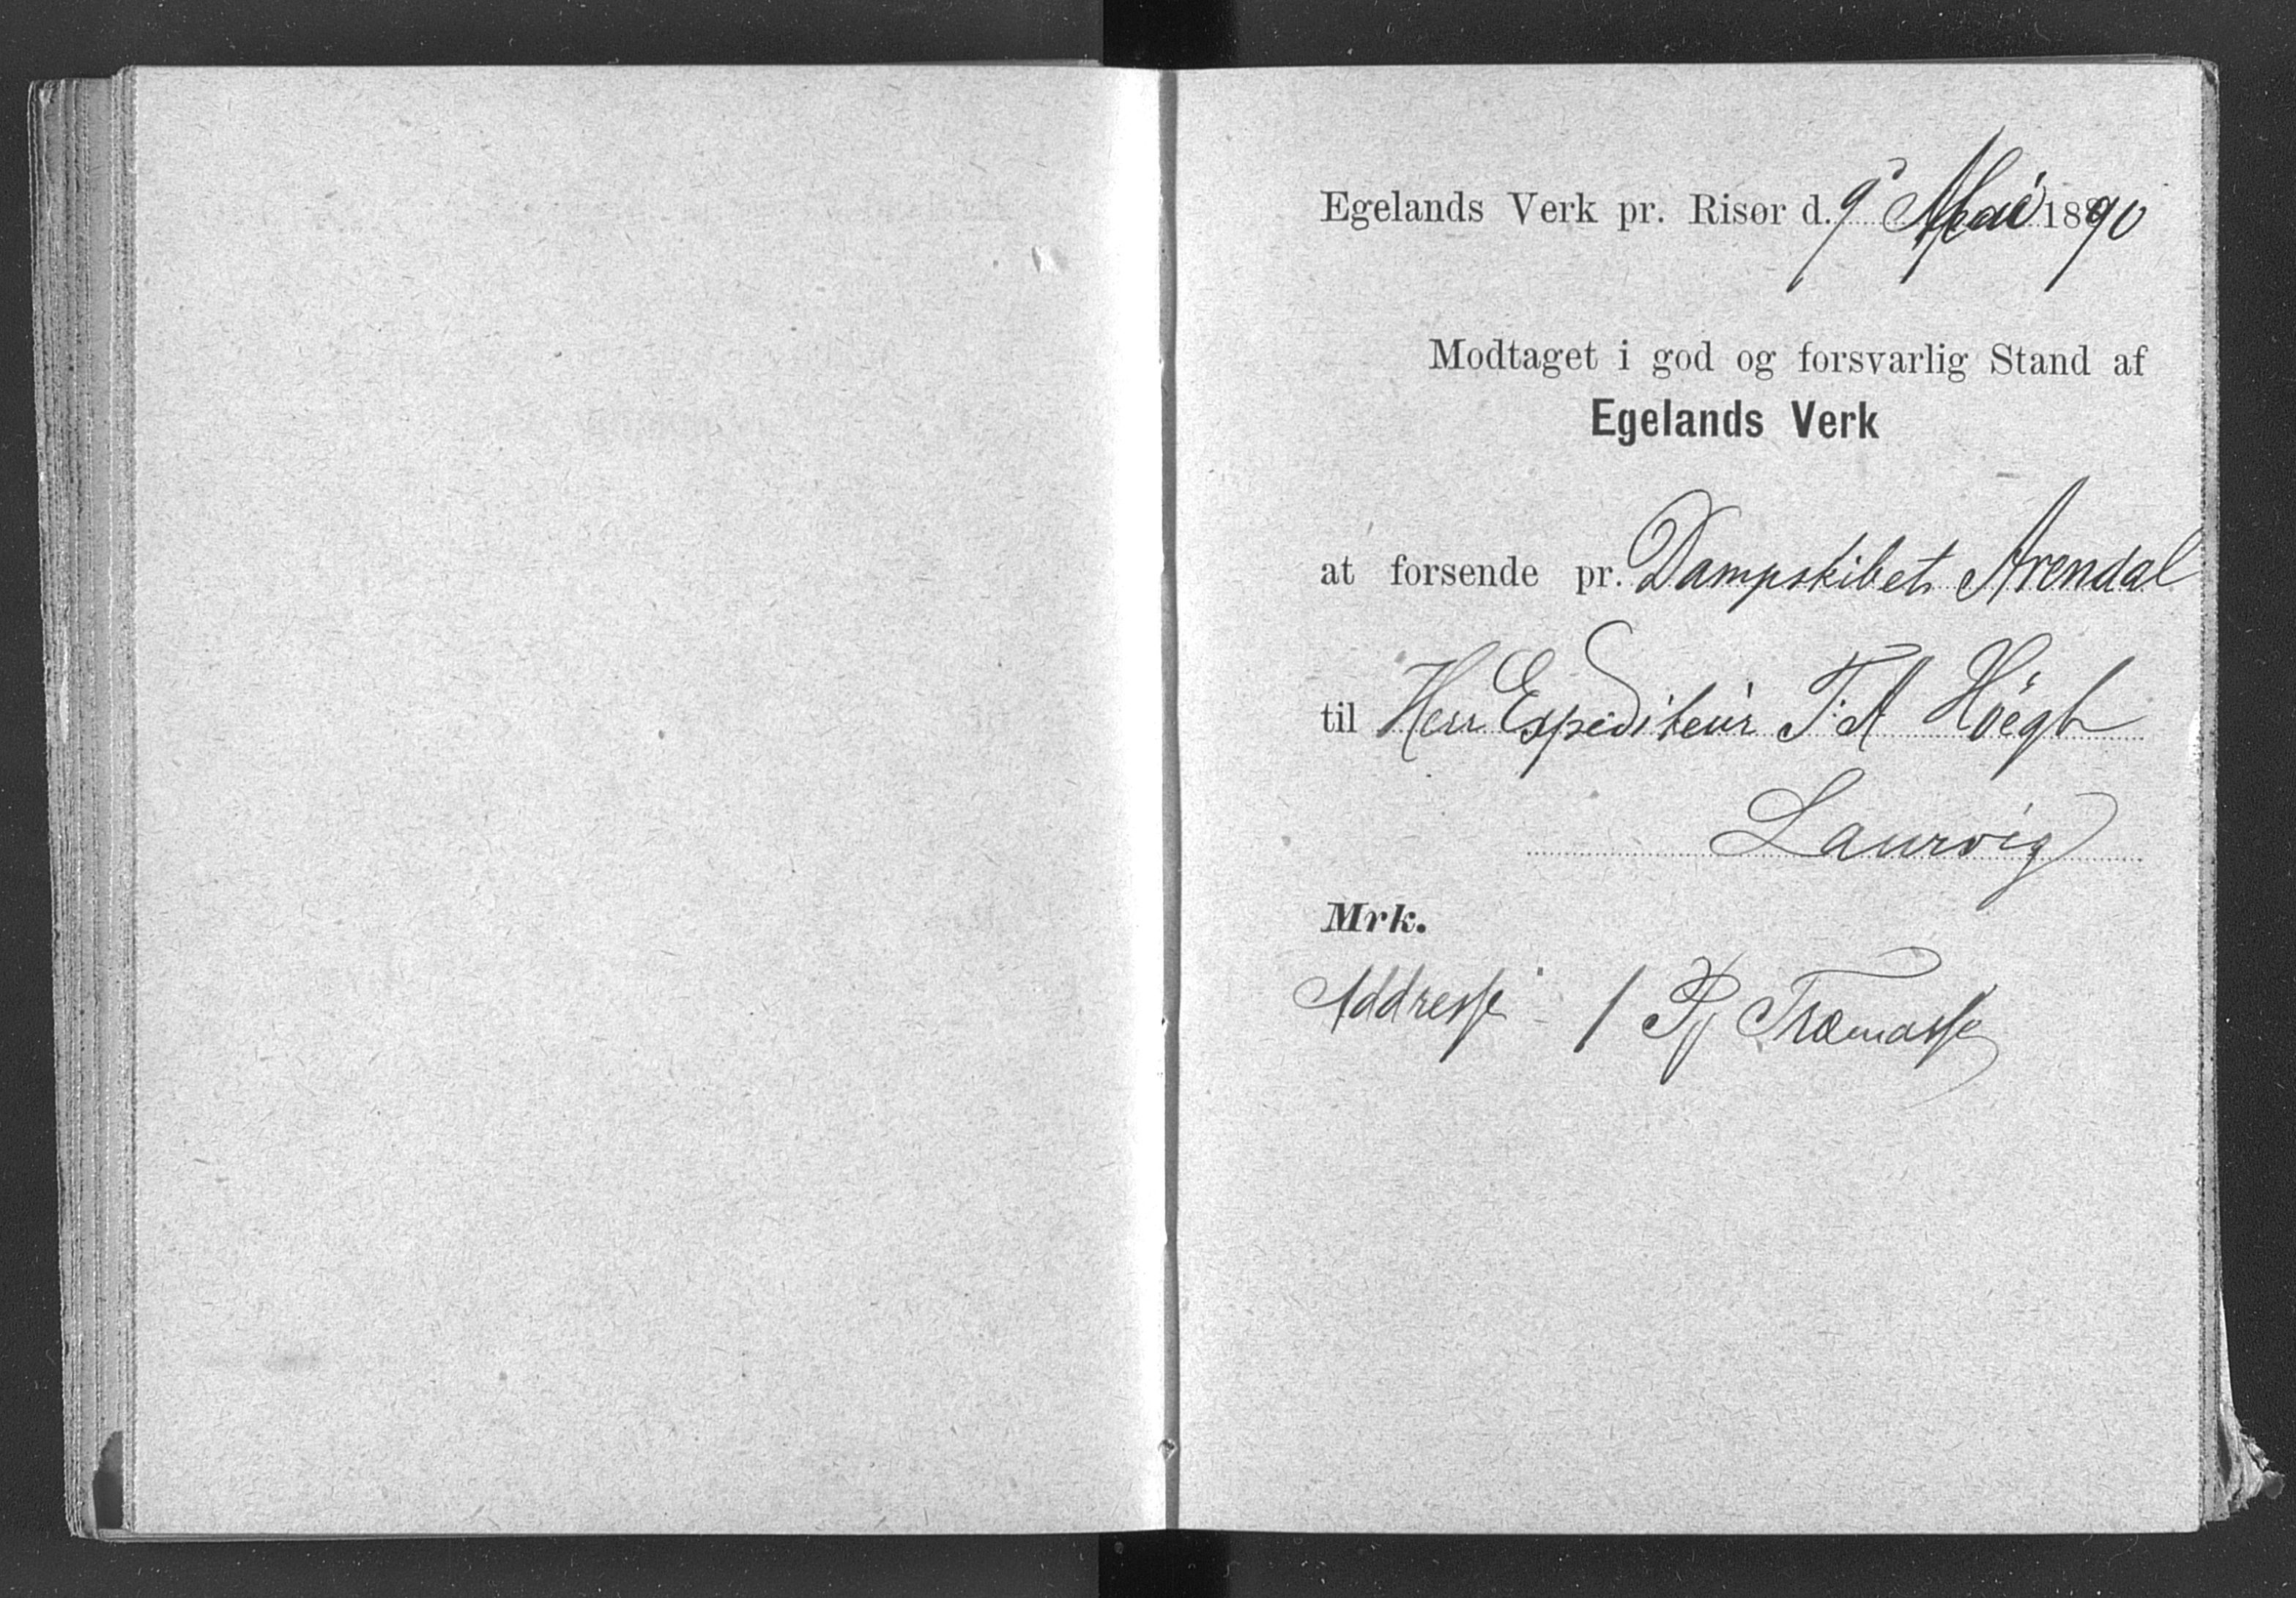 Egelands Verk pr. Risør d. 9 Mai 1890
Modtaget i god og forsvarlig Stand af
Egelands Verk
at forsende pr. Dampskibet Arendal
til Herr Expediteur T. A Høegh
Laurvig
Mrk.
Addresse 1 Træmasse